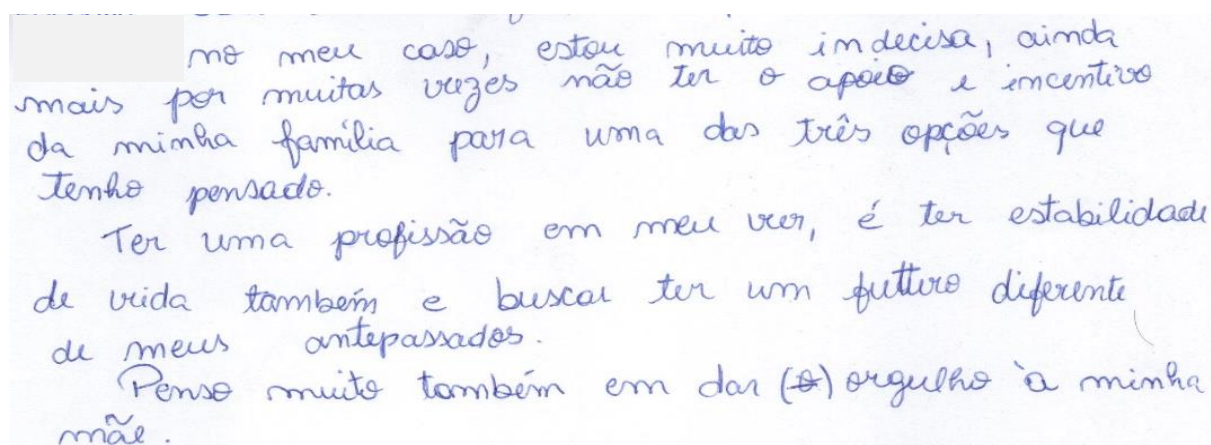 no meu caso, estou muito indecisa, ainda
mais por muitas vezes não ter o apoio e incentivo
da minha família para uma das três opções que
tenho pensado.
Ter uma profissão em meu ver, é ter estabilidade
de vida também e buscar ter um futturo diferente
de meus antepassados.
Penso muito também em dar (o) orgulho à minha
mãe.